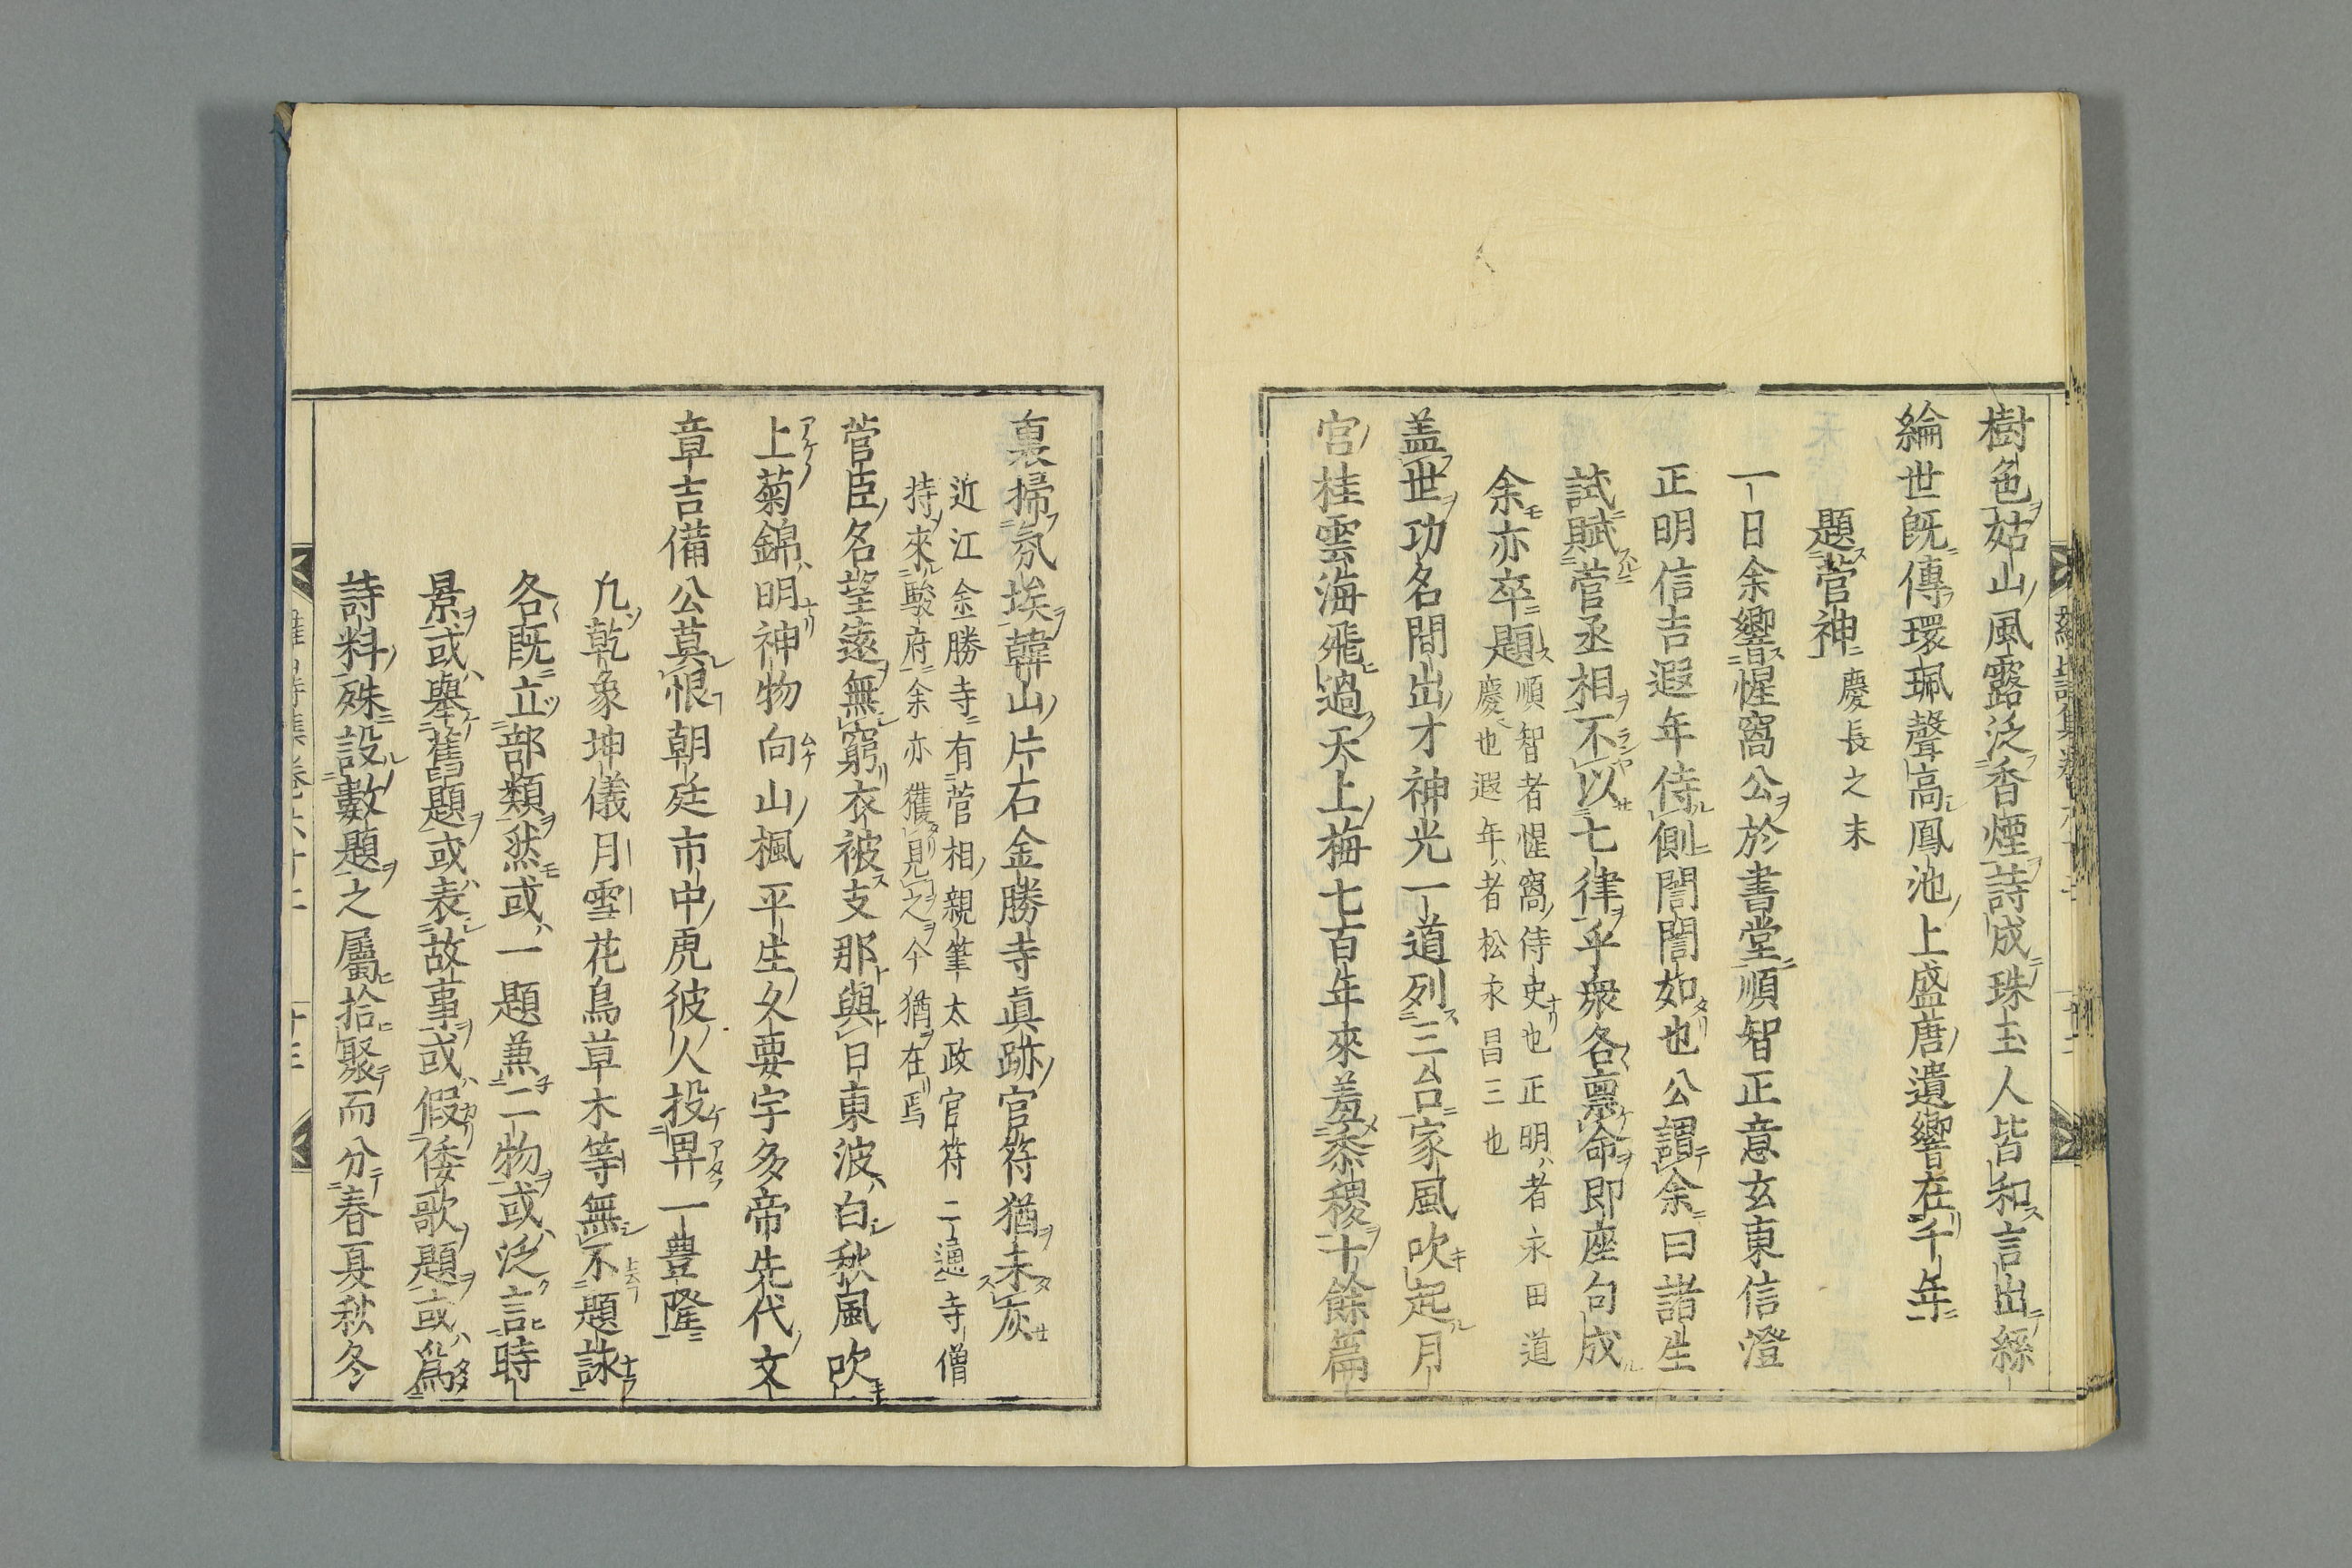 樹色姑山風露泛香煙詩成珠玉人皆和言出絲
綸世既傳環珮聲高鳳池上盛唐遺響在千年
題菅神慶長之末
一日余響惺窩公於書堂順智正意玄東信澄
正明信吉遐年侍側誾誾如也公謂余曰諸生
試賦菅丞相不以七律乎衆各禀命即座句成
余亦卒題順智者惺窩侍史也正明者永田道
慶也遐年者松永昌三也
盖世功名間出才神光一道列三台家風吹起月
宮桂雲海飛過天上梅七百年來羞黍稷十餘篇
裏掃氛埃韓山片石金勝寺眞跡官符猶未灰
近江金勝寺有菅相親筆太政官符二通寺僧
持來駿府余亦獲見之今猶在焉
菅臣名望遠無窮衣被支那與日東波白秋風吹
上菊錦明神物向山楓平生久要宇多帝先代文
章吉備公莫恨朝廷市中虎彼人投畀一豊隆
凢乾象坤儀月雪花鳥草木等無不題詠
各既立部類然或一題兼二物或泛言時
景或擧舊題或表故事或假倭歌題或爲
詩料殊設數題之屬拾聚而分春夏秋冬